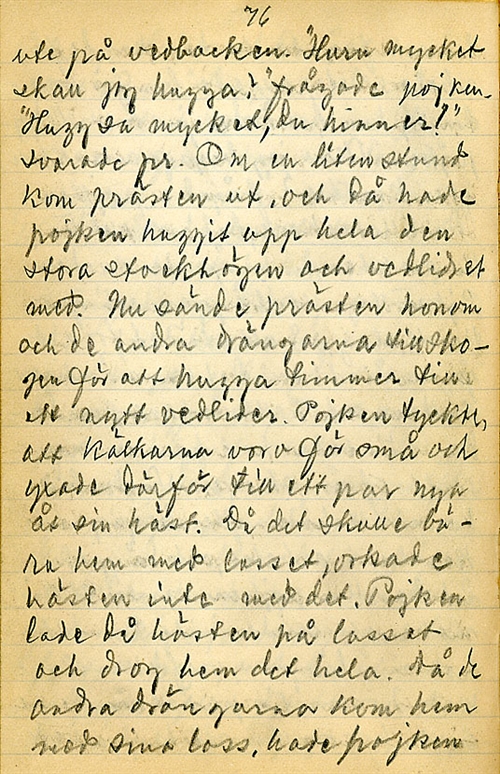 76
ute på vedbacken. "Huru mycket
skall jag hugga?" frågade pojken.
"Hugg så mycket, du hinner!"
svarade pr. Om en liten stund
kom prästen ut, och då hade
pojken huggit upp hela den
stora stockhögen och vedlidret
med. Nu sände prästen honom
och de andra drängarna till sko-
gen för att hugga timmer till
ett nytt vedlider. Pojken tyckte,
att kälkarna voro för små och
yxade därför till ett par nya
åt sin häst. Då det skulle bä-
ra hem med lasset, orkade
hästen inte med det. Pojken
lade då hästen på lasset
och drog hem det hela. Då de
andra drängarna kom hem
med sina lass, hade pojken